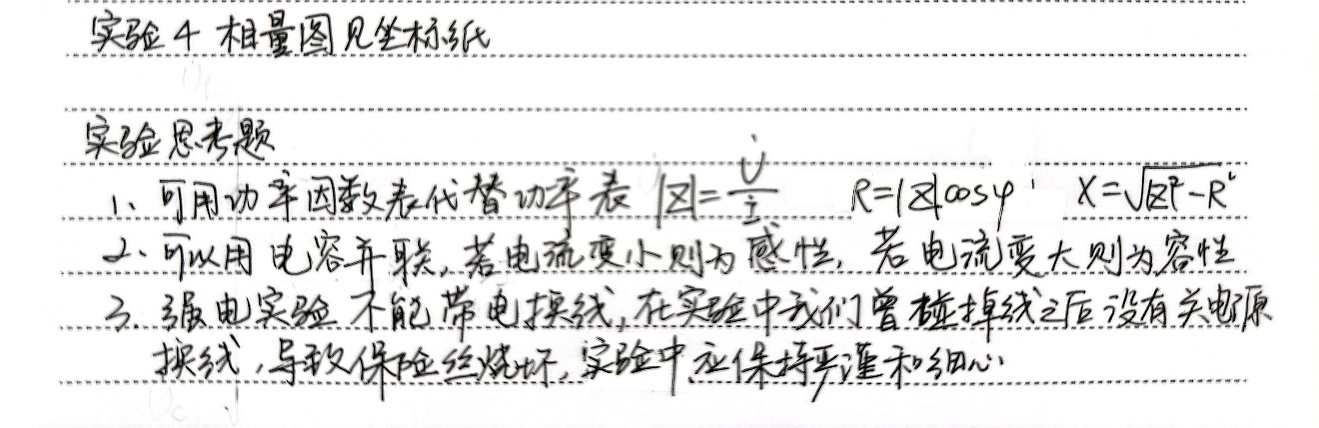 实验4 相量图见坐标纸
实验思考题
1、可用功率因数表代替功率表 |Z|=U̇/İ R=|Z|cosφ X=√|Z|²-R²
2、可以用电容并联,若电流变小则为感性,若电流变大则为容性
3、强电实验不能带电换线,在实验中我们曾碰掉线之后没有关电源
换线,导致保险丝烧坏,实验中应保持严谨和细心.